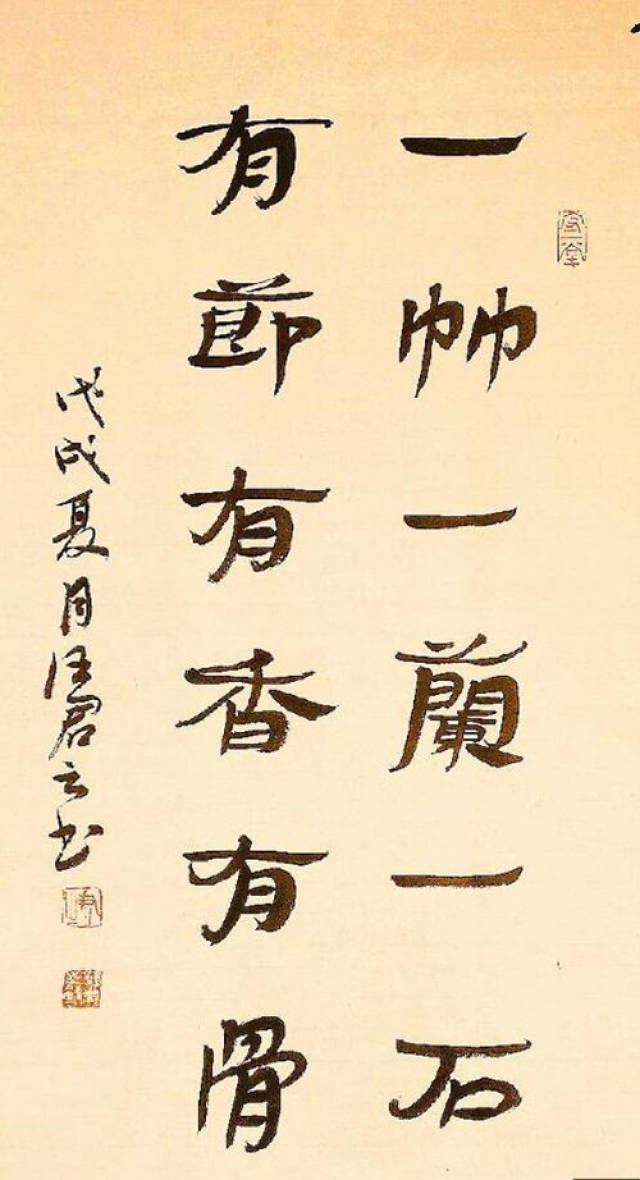 一竹一蘭一石
有節有香有骨
戊戌夏月汪君云书